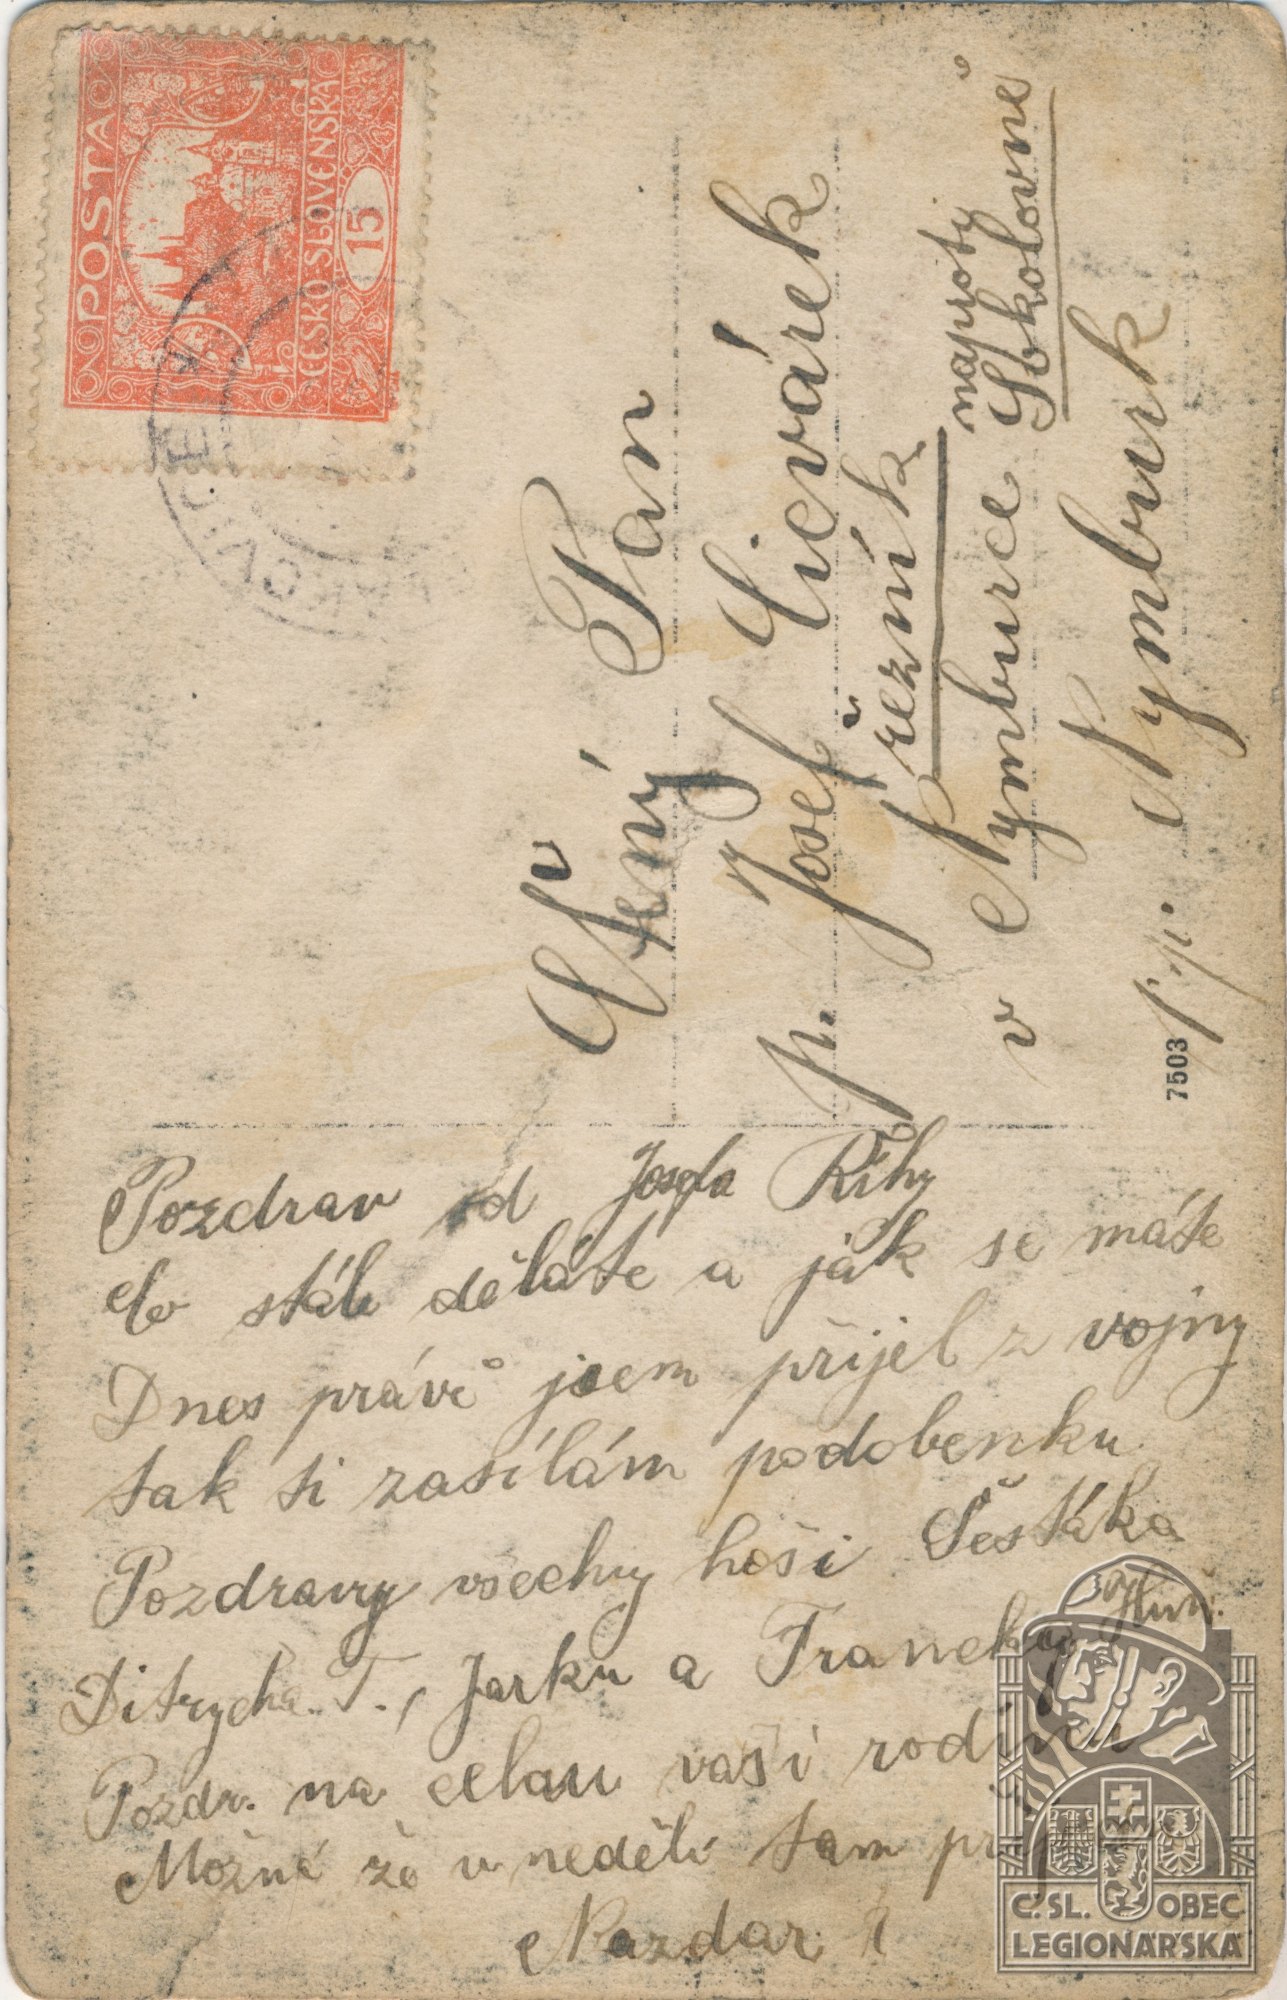 POŠTA
ČESKO-SLOVENSKÁ
15
Ctěný Pan
p. Josef Cievárek
řezník
v Nymburce naproty
Sokolovně
Nymburk
7503
Pozdrav od Josefa Říhy
Co stále děláte a jak se máte
Dnes právě jsem přijel z vojny
tak ti zasílám podobenku
Pozdravy všechny hoši Šestáka
Ditrycha T., Jarku a Francka
Pozdr. na celau vaši rodinu
Možná že v neděli tam
Nazdar
Č. SL. OBEC
LEGIONÁŘSKÁ